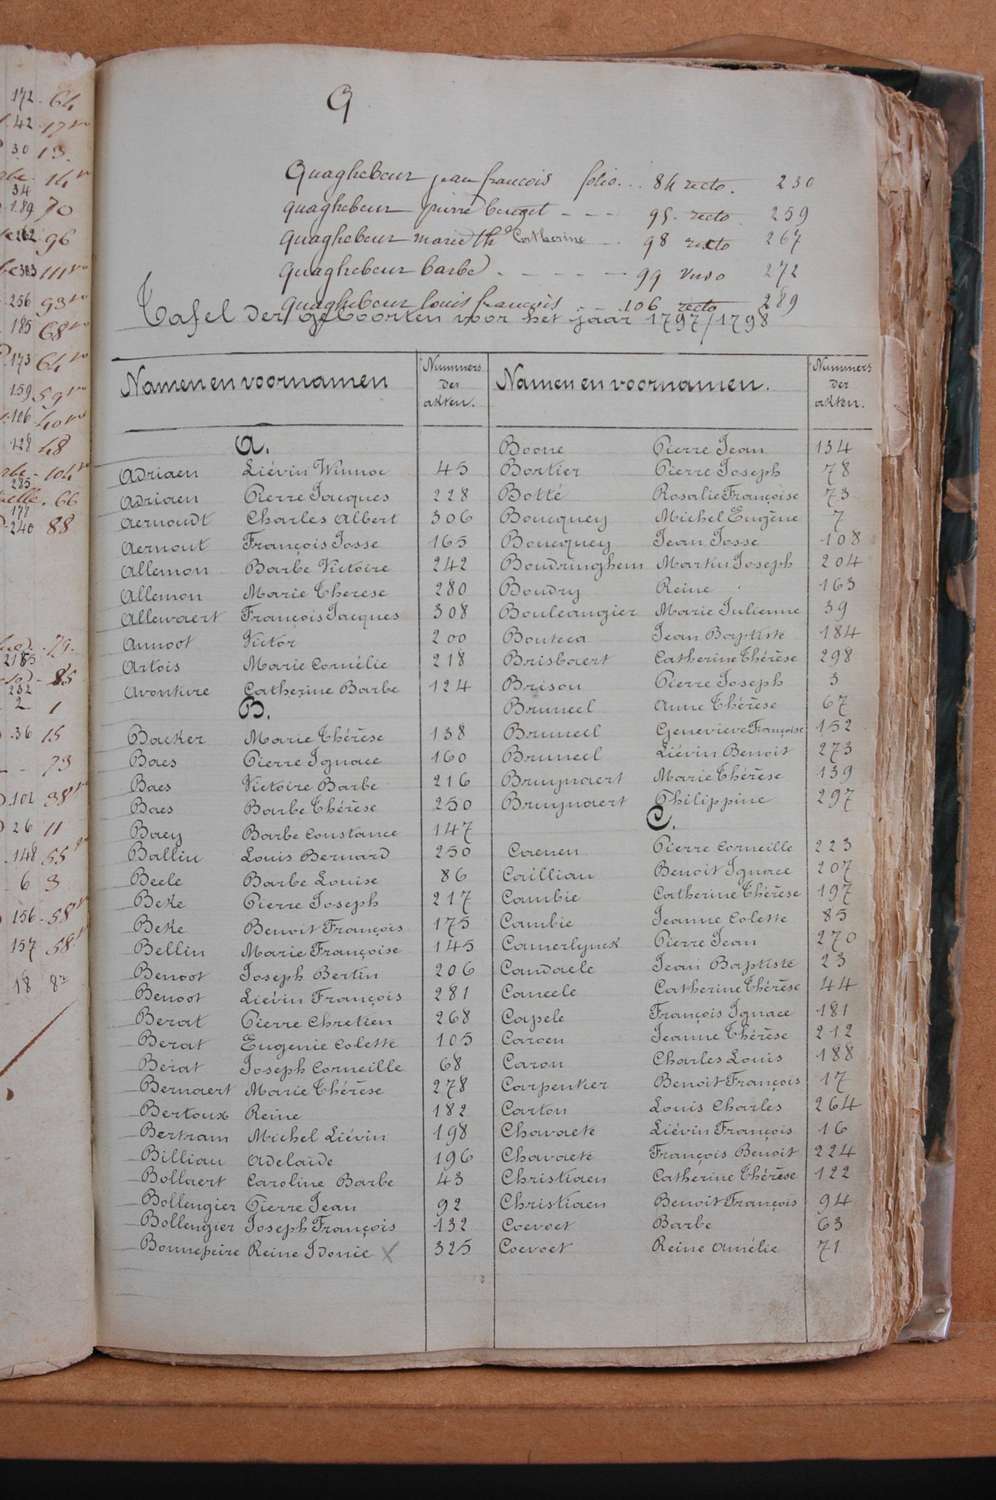 172 - 64
42 - 17 vo
30 13
34
189 70
262 96
303 111 vo
256 93 vo
185 68 vo
173 64 vo
159 59 vo
106 40 vo
128 48
104 vo
285
66
178
240 88
79
2185
85
232
2 1
36 15
73
101 38 vo
26 11
148 55 vo
6 3
156 - 58 vo
157 58 vo
18 8 vo
Q
Quaghebeur jean francois folio... 84 recto. 230
quaghebeur pierre benoit - - - 95 - recto 259
quaghebeur marie th Catherine - - 98 recto 267
quaghebeur barbe - - - - - - 99 verso 272
quaghebeur louis francois - 106 recto 289
Tafel der geboorten voor het jaar 1797/1798
Namen en voornamen Nummers der akten.
A.
Adriaen Liévin Winnoc 45
Adriaen Pierre Jacques 228
Aernoudt Charles Albert 306
Aernout François Josse 165
Allemon Barbe Victoire 242
Allemon Marie Therese 280
Allewaert François Jacques 308
Annoot Victor 200
Artois Marie Cornélie 218
Avonture Catherine Barbe 124
B.
Backer Marie Thérèse 138
Baes Pierre Ignace 160
Baes Victoire Barbe 216
Baes Barbe Thérèse 250
Baey Barbe Constance 147
Ballin Louis Bernard 250
Beele Barbe Louise 86
Beke Pierre Joseph 217
Beke Benoit François 175
Bellin Marie Françoise 145
Benoot Joseph Bertin 206
Benoot Liévin François 281
Berat Pierre Chretien 268
Berat Eugenie Colette 105
Berat Joseph Corneille 68
Bernaert Marie Thérèse 278
Bertoux Reine 182
Bertram Michel Liévin 198
Billiau Adelaïde 196
Bollaert Caroline Barbe 43
Bollengier Pierre Jean 92
Bollengier Joseph François 132
Bonnepeire Reine Idonie X 325
Namen en voornamen. Nummers der akten.
Boone Pierre Jean 134
Bortier Pierre Joseph 78
Botté Rosalie Françoise 73
Boucquey Michel Eugène 7
Boucquey Jean Josse 108
Boudringhem Martin Joseph 204
Boudry Reine 163
Bouleangier Marie Julienne 39
Bouteca Jean Baptiste 184
Brisbaert Catherine Thérèse 298
Brisou Pierre Joseph 3
Bruneel Anne Thérèse 67
Bruneel Genevieve Françoise 152
Bruneel Liévin Benoit 273
Bruynaert Marie Thérèse 139
Bruynaert Philippine 297
C.
Caenen Pierre Corneille 223
Cailliau Benoit Ignace 207
Cambie Catherine Thérèse 197
Cambie Jeanne Colette 85
Camerlynck Pierre Jean 270
Candaele Jean Baptiste 23
Caneele Catherine Thérèse 44
Capele François Ignace 181
Caroen Jeanne Thérèse 212
Caron Charles Louis 188
Carpentier Benoit François 17
Carton Louis Charles 264
Chavaete Liévin François 16
Chavaete François Benoit 224
Christiaen Catherine Thérèse 122
Christiaen Benoit François 94
Coevoet Barbe 63
Coevoet Reine Amélie 71